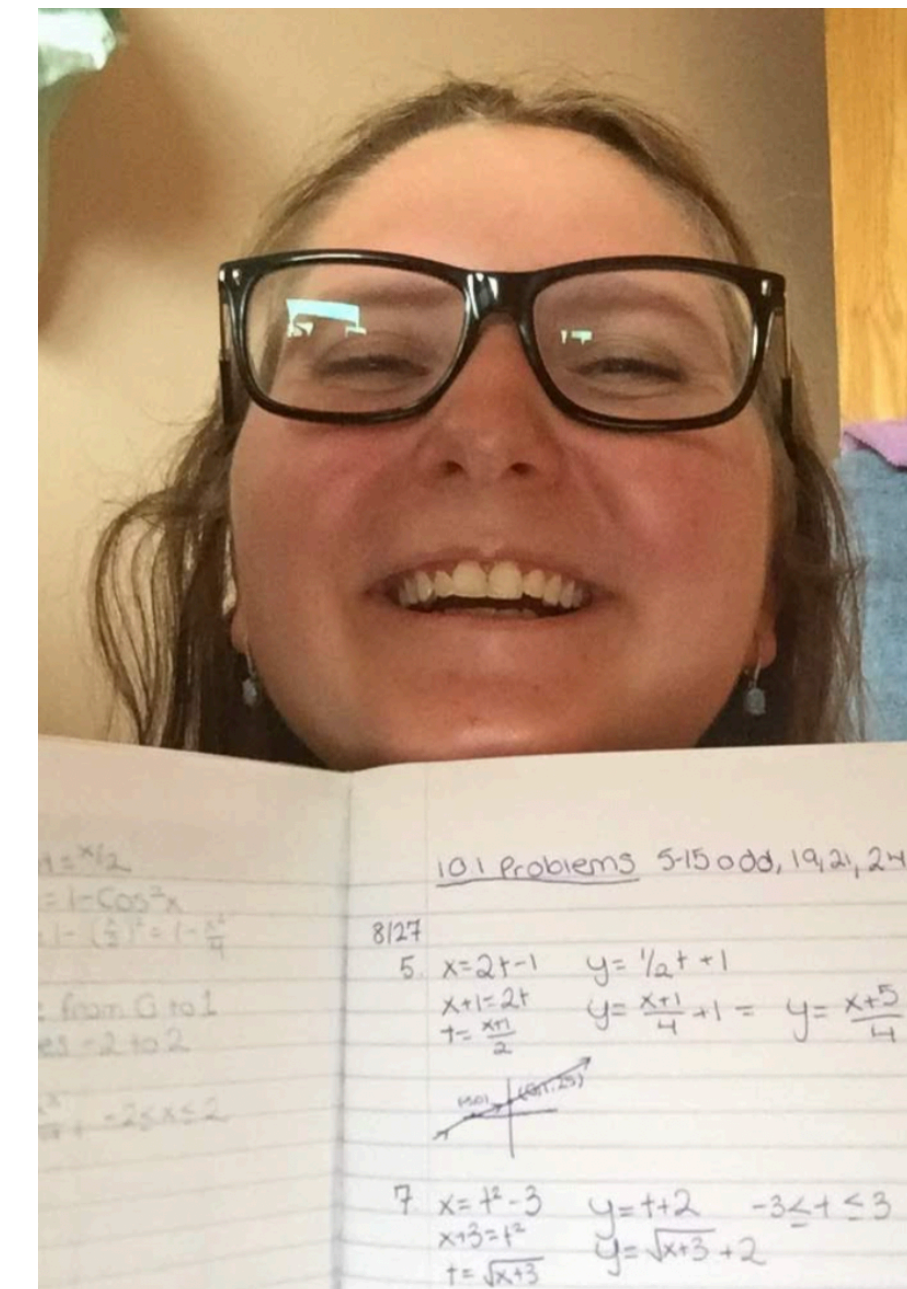 = 1-Cos²x
= 1-x²/4
from 0 to 1
-2 to 2
-2≤x≤2
10.1 Problems 5-15 odd, 19, 21, 24
8/27
5. x=2t-1 y= 1/2t +1
x+1=2t y= x+1/4 +1 = y= x+5/4
t= x+1/2
7. x= t²-3 y=t+2 -3≤t≤3
x+3=t² y=√x+3 +2
t= √x+3